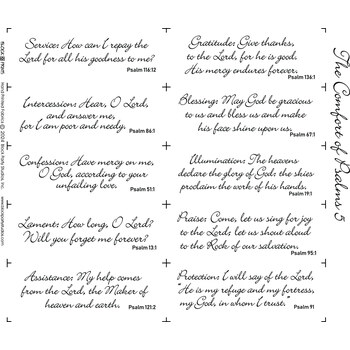 Service: How can I repay the
Lord for all his goodness to me?
Psalm 116:12
Gratitude: Give thanks,
to the Lord, for he is good.
His mercy endures forever.
Psalm 136:1
Intercession: Hear, O Lord,
and answer me,
for I am poor and needy.
Psalm 86:1
Blessing: May God be gracious
to us and bless us and make
his face shine upon us.
Psalm 67:1
Confession: Have mercy on me,
O God, according to your
unfailing love.
Psalm 51:1
Illumination: The heavens
declare the glory of God: the skies
proclaim the work of his hands.
Psalm 19:1
Lament: How long, O Lord?
Will you forget me forever?
Psalm 13:1
Praise: Come, let us sing for joy
to the Lord; let us shout aloud
to the Rock of our salvation.
Psalm 95:1
Assistance: My help comes
from the Lord, the Maker of
heaven and earth.
Psalm 121:2
Protection: I will say of the Lord,
"He is my refuge and my fortress,
my God, in whom I trust."
Psalm 91
The Comfort of Psalms 5